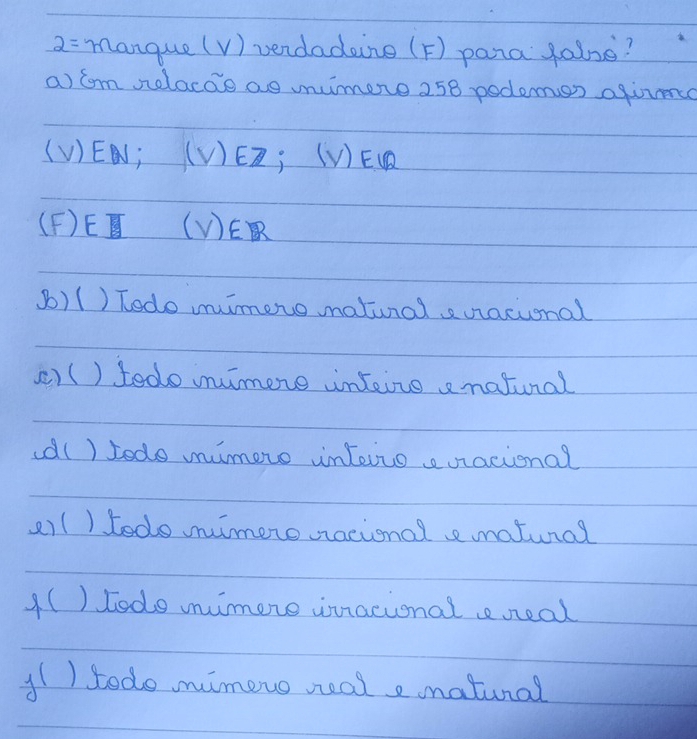 2= marque (V) verdadeiro (F) para falso?
a) Em relacão ao número 258 podemos afirma
(V) EN; (V) EZ; (V) EQ
(F) E I (V) E R
b) ( ) Todo número natural e racional
c) ( ) todo número inteiro e natural
d ( ) todo número inteiro e racional
e) ( ) todo número racional e natural
f ( ) todo número irracional e real
g ( ) todo número real e natural